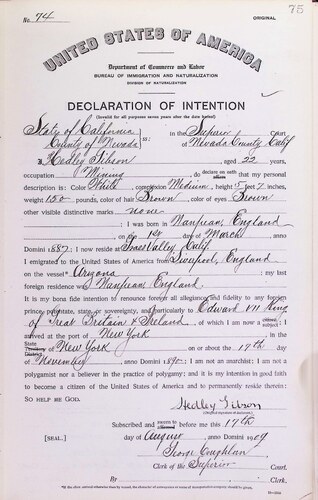 75
No. 74
ORIGINAL
UNITED STATES OF AMERICA
Department of Commerce and Labor
BUREAU OF IMMIGRATION AND NATURALIZATION
DIVISION OF NATURALIZATION
DECLARATION OF INTENTION
(Invalid for all purposes seven years after the date hereof)
State of California
County of Nevada ss: In the Superior Court
of Nevada County Calif
I, Hedley Gibson, aged 22 years,
occupation Mining, do declare on oath that my personal
description is: Color White, complexion Medium, height 5 feet 7 inches,
weight 150 pounds, color of hair Brown, color of eyes Brown
other visible distinctive marks none
I was born in Nanpean, England
on the 1st day of March, anno
Domini 1887; I now reside at Grass Valley Calif.
I emigrated to the United States of America from Liverpool, England
on the vessel* ; my last
foreign residence was Nanpean England.
It is my bona fide intention to renounce forever all allegiance and fidelity to any foreign
prince, potentate, state, or sovereignty, and particularly to Edward VII King
of Great Britain & Ireland, of which I am now a subject; I
arrived at the port of New York, in the
State of New York on or about the 17th day
of November, anno Domini; I am not an anarchist; I am not a
polygamist nor a believer in the practice of polygamy; and it is my intention in good faith
to become a citizen of the United States of America and to permanently reside therein:
SO HELP ME GOD.
Hedley Gibson
Subscribed and sworn to before me this 17th
[SEAL.] day of August, anno Domini 1909
George Coughlan
Clerk of the Superior Court.
By , Clerk.